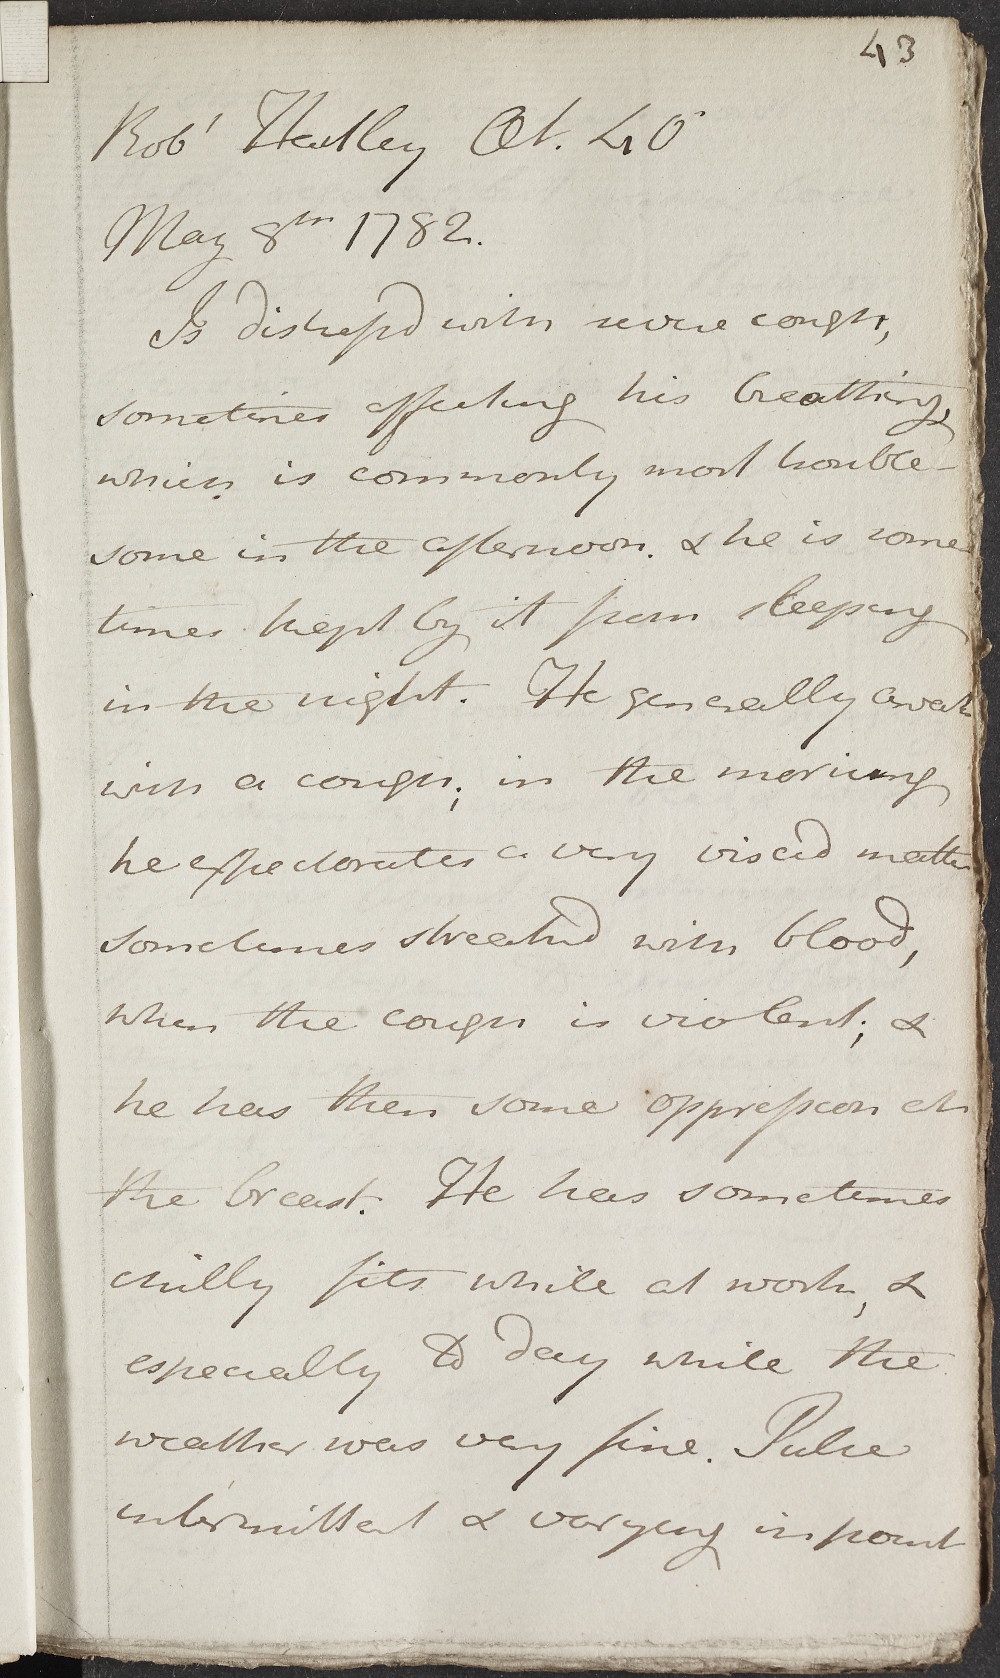 43
Robt Heatley Æt. 40
May 8th 1782.
Is distress'd with severe cough,
sometimes affecting his breathing,
which is commonly most trouble-
some in the afternoon. & he is some
times kept by it from sleeping
in the night. He generally awak
with a cough; in the morning
he expectorates a very viscid matter
sometimes streaked with blood,
when the cough is violent; &
he has then some oppression at
the breast. He has sometimes
chilly fits while at work, &
especially to day while the
weather was very fine. Pulse
intermittent & varying in point